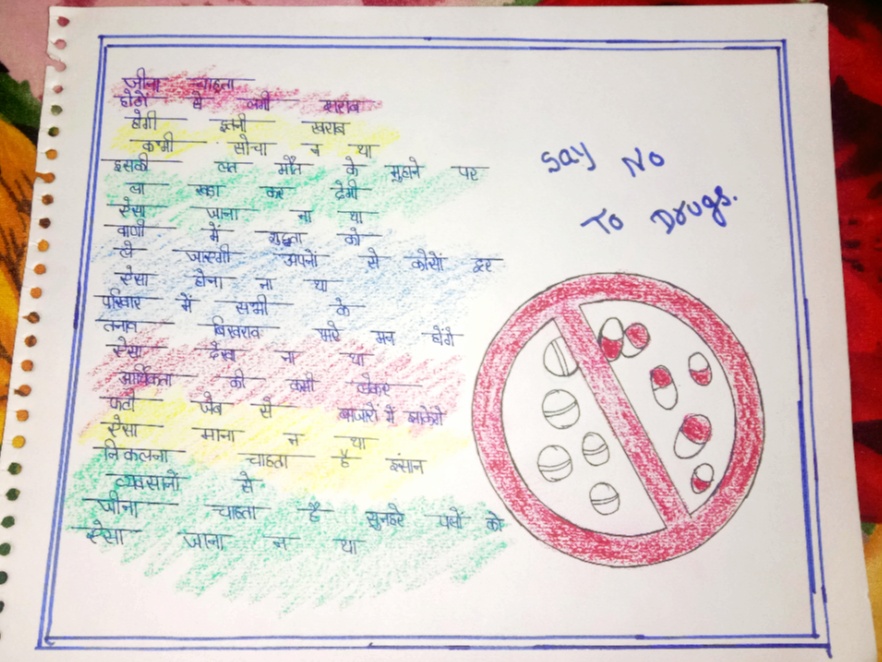 जीना चाहता
होठों से लगी शराब
होगी इतनी खराब
कभी सोचा न था
इसकी लत मौत के मुहाने पर
ला खड़ा कर देगी
ऐसा जाना ना था
वाणी में शुद्धता को
ले जाएगी अपनों से कोसों दूर
ऐसा होना ना था
परिवार में सभी के
तनाव बिखराव मन होंगे
ऐसा देखा ना था
आर्थिकता की कमी लेकर
जेब से बाजारों में
ऐसा माना न था
निकलना चाहता है इंसान
व्यवसानों से
जीना चाहता है सुनहरे पलों को
ऐसा जाना न था
Say No
To Drugs.